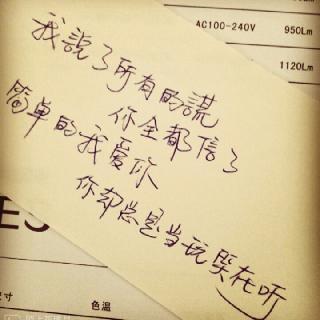 AC100-240V 950Lm
1120Lm
我說了所有的謊
你全都信了
简单的我爱你
你却总是当玩哭在听
ES
寸 色温